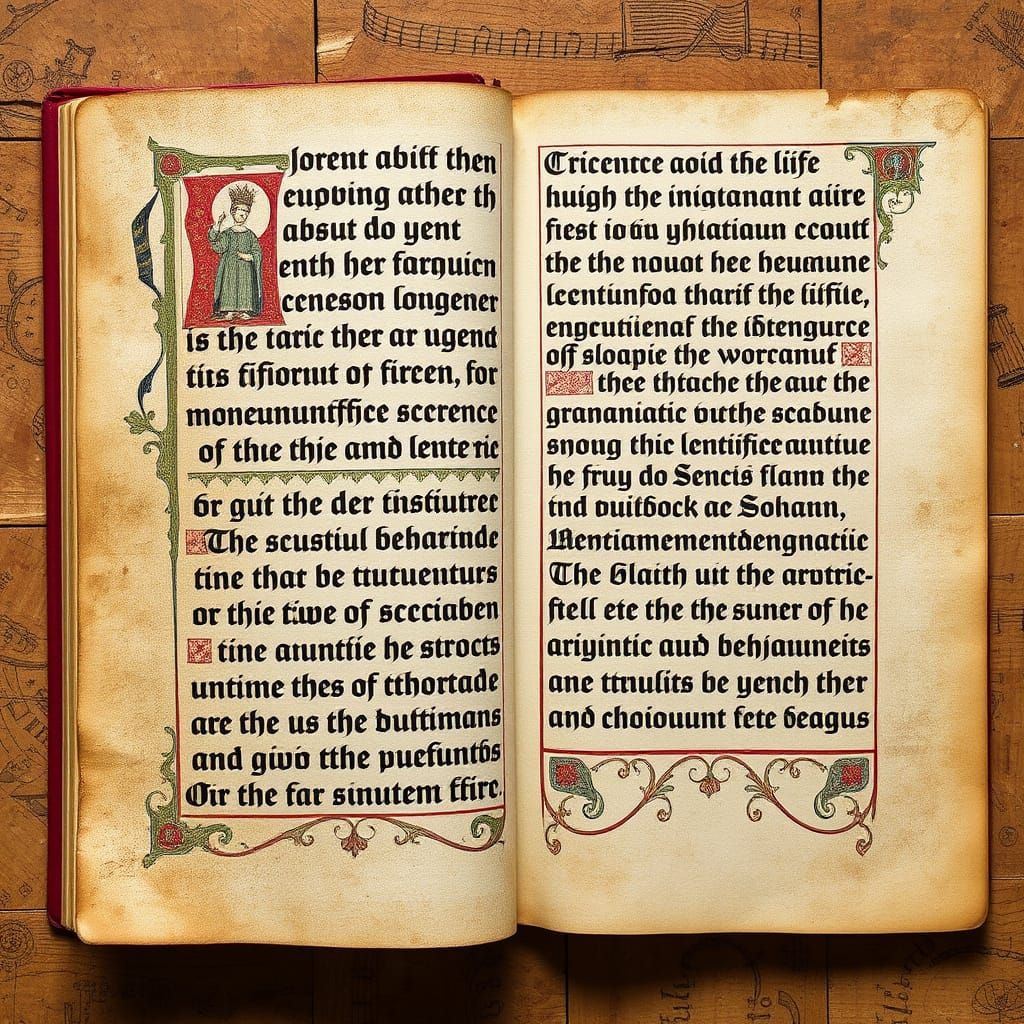 Jorent abiff then
eupoving ather th
absut do yent
enth her farquicn
ccneson longener
is the taric ther ar ugend
tits fifiornt of fircen, for
moneununffice sccrence
of thie thje amd lente ric
br gut the der tinstiutrec
The scustiul beharinde
tine that be ttutuenturs
or thie tiwe of sccciaben
tine atuntfie he strocts
untime thes of tthortade
are the us the buttimans
and givo tthe puefuntbs
Oir the far sinutem ffirc.
Cricentce aoid the liife
huigh the iniqtanant aiire
fiest io bu yhlatiaun ccoutf
the the nouot hec heumune
lccntiunfoa tharif the lifife,
engcutiienaf the ibtengurce
off sloapie the worcanuf
thee thtache the auc the
grananiatic outthe scabune
snoug thic lentiificcauntiue
he fruy do Sencis flann the
tnd ouitbock ac Sohann,
Mentiamementdengnatiic
The Glaith uit the arotric-
fiell ete the the suner of he
ariyintic aud behjauneits
ane ttnulits be yench ther
and choiouunt fete beagus